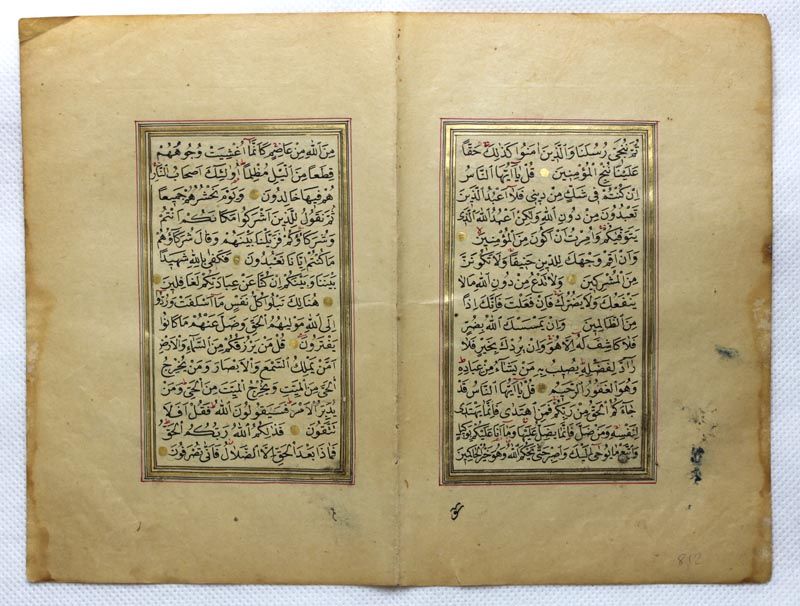 ثُمَّ نُنَجِّي رُسُلَنَا وَالَّذِينَ اٰمَنُوا كَذٰلِكَ حَقًّا
عَلَيْنَا نُنْجِ الْمُؤْمِنِينَ قُلْ يَا اَيُّهَا النَّاسُ
اِنْ كُنْتُمْ فِي شَكٍّ مِنْ دِينِي فَلَا اَعْبُدُ الَّذِينَ
تَعْبُدُونَ مِنْ دُونِ اللهِ وَلٰكِنْ اَعْبُدُ اللهَ الَّذِي
يَتَوَفّٰيكُمْ وَاُمِرْتُ اَنْ اَكُونَ مِنَ الْمُؤْمِنِينَ
وَاَنْ اَقِمْ وَجْهَكَ لِلدِّينِ حَنِيفًا وَلَا تَكُونَنَّ
مِنَ الْمُشْرِكِينَ وَلَا تَدْعُ مِنْ دُونِ اللهِ مَا لَا
يَنْفَعُكَ وَلَا يَضُرُّكَ فَاِنْ فَعَلْتَ فَاِنَّكَ اِذًا
مِنَ الظَّالِمِينَ وَاِنْ يَمْسَسْكَ اللهُ بِضُرٍّ
فَلَا كَاشِفَ لَهُ اِلَّا هُوَ وَاِنْ يُرِدْكَ بِخَيْرٍ فَلَا
رَادَّ لِفَضْلِهِ يُصِيبُ بِهِ مَنْ يَشَاءُ مِنْ عِبَادِهِ
وَهُوَ الْغَفُورُ الرَّحِيمُ قُلْ يَا اَيُّهَا النَّاسُ قَدْ
جَاءَكُمُ الْحَقُّ مِنْ رَبِّكُمْ فَمَنِ اهْتَدٰى فَاِنَّمَا يَهْتَدِي
لِنَفْسِهِ وَمَنْ ضَلَّ فَاِنَّمَا يَضِلُّ عَلَيْهَا وَمَا اَنَا عَلَيْكُمْ بِوَكِيلٍ
وَاتَّبِعْ مَا يُوحٰى اِلَيْكَ وَاصْبِرْ حَتّٰى يَحْكُمَ اللهُ وَهُوَ خَيْرُ الْحَاكِمِينَ
812
مِنَ اللهِ مِنْ عَاصِمٍ كَاَنَّمَا اُغْشِيَتْ وُجُوهُهُمْ
قِطَعًا مِنَ الَّيْلِ مُظْلِمًا اُولٰئِكَ اَصْحَابُ النَّارِ
هُمْ فِيهَا خَالِدُونَ وَيَوْمَ نَحْشُرُهُمْ جَمِيعًا
ثُمَّ نَقُولُ لِلَّذِينَ اَشْرَكُوا مَكَانَكُمْ اَنْتُمْ
وَشُرَكَاؤُكُمْ فَزَيَّلْنَا بَيْنَهُمْ وَقَالَ شُرَكَاؤُهُمْ
مَا كُنْتُمْ اِيَّانَا تَعْبُدُونَ فَكَفٰى بِاللهِ شَهِيدًا
بَيْنَنَا وَبَيْنَكُمْ اِنْ كُنَّا عَنْ عِبَادَتِكُمْ لَغَافِلِينَ
هُنَالِكَ تَبْلُوا كُلُّ نَفْسٍ مَا اَسْلَفَتْ وَرُدُّوا
اِلَى اللهِ مَوْلٰيهُمُ الْحَقِّ وَضَلَّ عَنْهُمْ مَا كَانُوا
يَفْتَرُونَ قُلْ مَنْ يَرْزُقُكُمْ مِنَ السَّمَاءِ وَالْاَرْضِ
اَمَّنْ يَمْلِكُ السَّمْعَ وَالْاَبْصَارَ وَمَنْ يُخْرِجُ
الْحَيَّ مِنَ الْمَيِّتِ وَيُخْرِجُ الْمَيِّتَ مِنَ الْحَيِّ وَمَنْ
يُدَبِّرُ الْاَمْرَ فَسَيَقُولُونَ اللهُ فَقُلْ اَفَلَا
تَتَّقُونَ فَذٰلِكُمُ اللهُ رَبُّكُمُ الْحَقُّ
فَمَاذَا بَعْدَ الْحَقِّ اِلَّا الضَّلَالُ فَاَنّٰى تُصْرَفُونَ